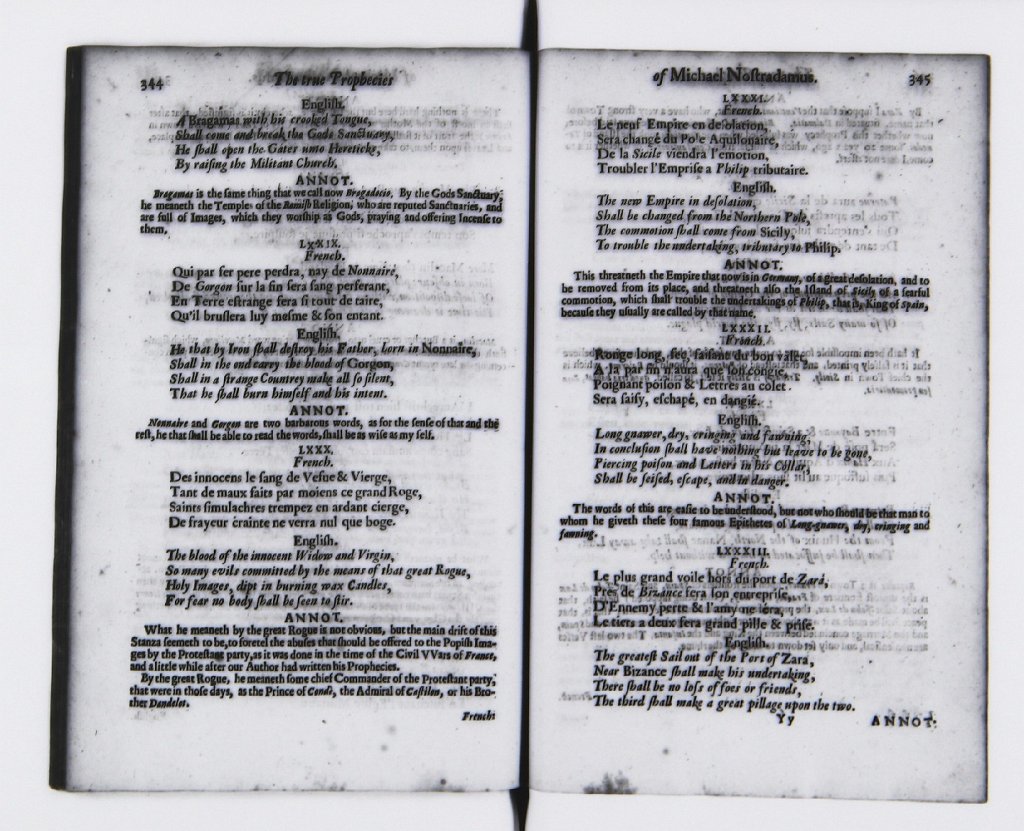 344
The true Prophecies
English.
A Bragamas with his crooked Tongue,
Shall come and break the Gods Sanctuary,
He shall open the Gates unto Hereticks,
By raising the Militant Church.
ANNOT.
Bragamas is the same thing that we call now Bragadocio. By the Gods Sanctuary,
he meaneth the Temples of the Romish Religion, who are reputed Sanctuaries, and
are full of Images, which they worship as Gods, praying and offering Incense to
them.
LXXIX.
French.
Qui par fer pere perdra, nay de Nonnaire,
De Gorgon sur la fin sera sang perferant,
En Terre estrange fera si tout de taire,
Qu'il bruslera luy mesme & son entant.
English.
He that by Iron shall destroy his Father, born in Nonnaire,
Shall in the end carry the blood of Gorgon,
Shall in a strange Countrey make all so silent,
That he shall burn himself and his intent.
ANNOT.
Nonnaire and Gorgon are two barbarous words, as for the sense of that and the
rest, he that shall be able to read the words, shall be as wise as my self.
LXXX.
French.
Des innocens le sang de Vefue & Vierge,
Tant de maux faits par moiens ce grand Roge,
Saints simulachres trempez en ardant cierge,
De frayeur crainte ne verra nul que boge.
English.
The blood of the innocent Widow and Virgin,
So many evils committed by the means of that great Rogue,
Holy Images, dipt in burning wax Candles,
For fear no body shall be seen to stir.
ANNOT.
What he meaneth by the great Rogue is not obvious, but the main drift of this
Stanza seemeth to be, to foretel the abuses that should be offered to the Popish Ima-
ges by the Protestant party, as it was done in the time of the Civil VVars of France,
and a little while after our Author had written his Prophecies.
By the great Rogue, he meaneth some chief Commander of the Protestant party,
that were in those days, as the Prince of Condé, the Admiral of Castilon, or his Bro-
ther Dandelot.
French
of Michael Nostradamus.
345
LXXXI.
French.
Le neuf Empire en desolation,
Sera changé du Pole Aquilonaire,
De la Sicile viendra l'emotion,
Troubler l'Emprise a Philip tributaire.
English.
The new Empire in desolation,
Shall be changed from the Northern Pole,
The commotion shall come from Sicily,
To trouble the undertaking, tributary to Philip.
ANNOT.
This threatneth the Empire that now is in Germany, of a great desolation, and to
be removed from its place, and threatneth also the Island of Sicily of a fearful
commotion, which shall trouble the undertakings of Philip, that is, King of Spain,
because they usually are called by that name.
LXXXII.
French.
Ronge long, sec, faisant du bon valet,
A la par fin n'aura que son congie,
Poignant poison & Lettres au colet
Sera saisy, eschapé, en dangié.
English.
Long gnawer, dry, cringing and fawning,
In conclusion shall have nothing but leave to be gone,
Piercing poison and Letters in his Collar,
Shall be seised, escape, and in danger.
ANNOT.
The words of this are easie to be understood, but not who should be that man to
whom he giveth these four famous Epithetes of Long-gnawer, dry, cringing and
fawning.
LXXXIII.
French.
Le plus grand voile hors du port de Zara,
Pres de Bizance fera son entreprise,
D'Ennemy perte & l'amy ne sera,
Le tiers a deux fera grand pille & prise.
English.
The greatest Sail out of the Port of Zara,
Near Bizance shall make his undertaking,
There shall be no loss of foes or friends,
The third shall make a great pillage upon the two.
Yy
ANNOT.